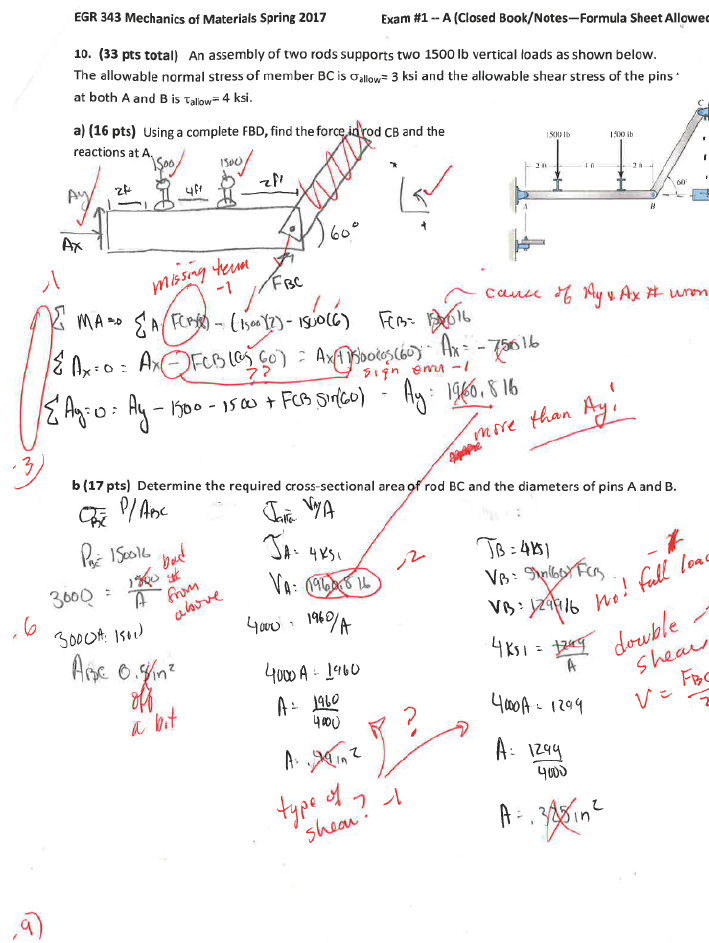 EGR 343 Mechanics of Materials Spring 2017 Exam #1 -- A (Closed Book/Notes—Formula Sheet Allowed
10. (33 pts total) An assembly of two rods supports two 1500 lb vertical loads as shown below.
The allowable normal stress of member BC is σallow= 3 ksi and the allowable shear stress of the pins
at both A and B is τallow= 4 ksi.
a) (16 pts) Using a complete FBD, find the force in rod CB and the
reactions at A.
1500 1500
Ay 2ft 4ft 2ft
Ax 60°
FBC
C
1500 lb 1500 lb
2 ft 4 ft 2 ft
60°
A B
missing term
-1
-1
Σ MA=0 ΣA FCB(8) - (1500)(2) - 1500(6) FCB= 1500 lb
cause of Ay & Ax # wron
Σ Ax=0 = Ax - FCB(cos 60) = Ax + 1500cos(60) Ax = -750 lb
?? sign error -1
Σ Ay=0 = Ay - 1500 - 1500 + FCB sin(60) - Ay = 1960.8 lb
more than Ay!
-3)
b (17 pts) Determine the required cross-sectional area of rod BC and the diameters of pins A and B.
σBC = P/ABC
PBC = 1500 lb
3000 = 1500/A
bad # from above
3000A = 1500
ABC 0.5 in²
off
a bit
-6
V/A
τA = 4 ksi
VA = 1960.8 lb
-2
4000 = 1960/A
4000A = 1960
A = 1960/4000
A = .49 in²
?
type of
shear? -1
τB = 4 ksi
VB = sin(60) FCB
VB = 1299 lb
No! full load
4 ksi = 1299/A
double
shear
V = FBC/2
4000A = 1299
A = 1299/4000
A = .325 in²
-9)